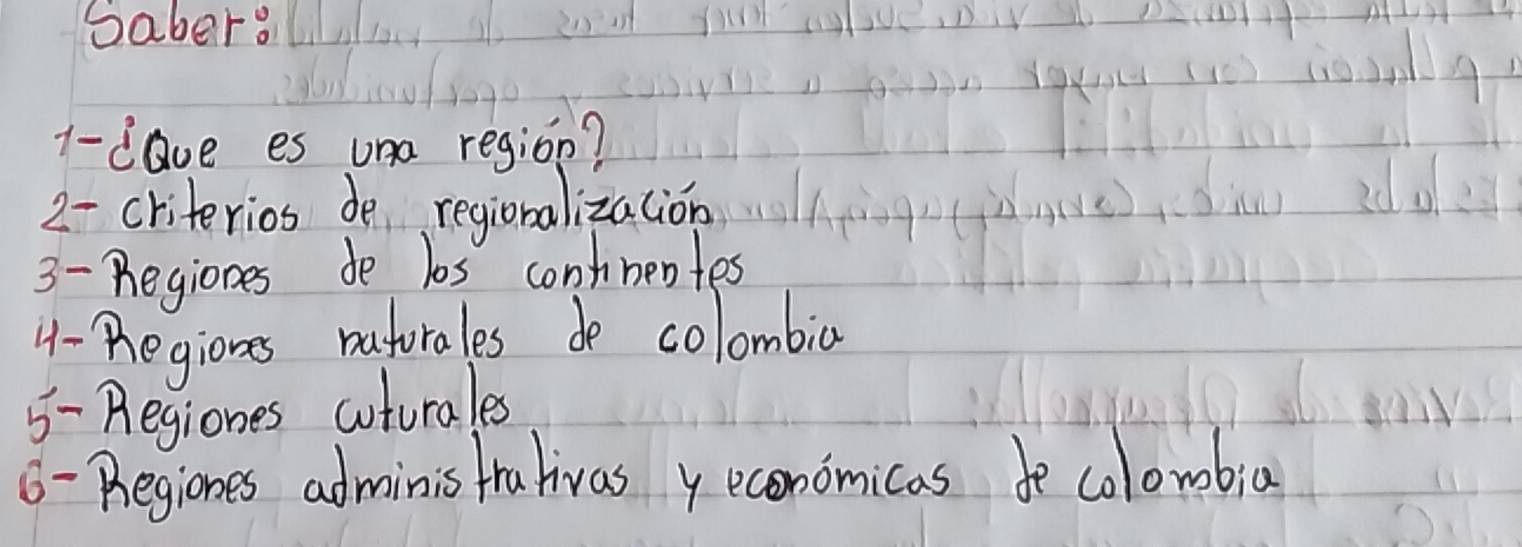 Saber:
1-¿Que es una región?
2- criterios de regionalización
3- Regiones de los continentes
4- Regiones naturales de colombia
5- Regiones cuturales
6- Regiones administrativas y económicas de colombia